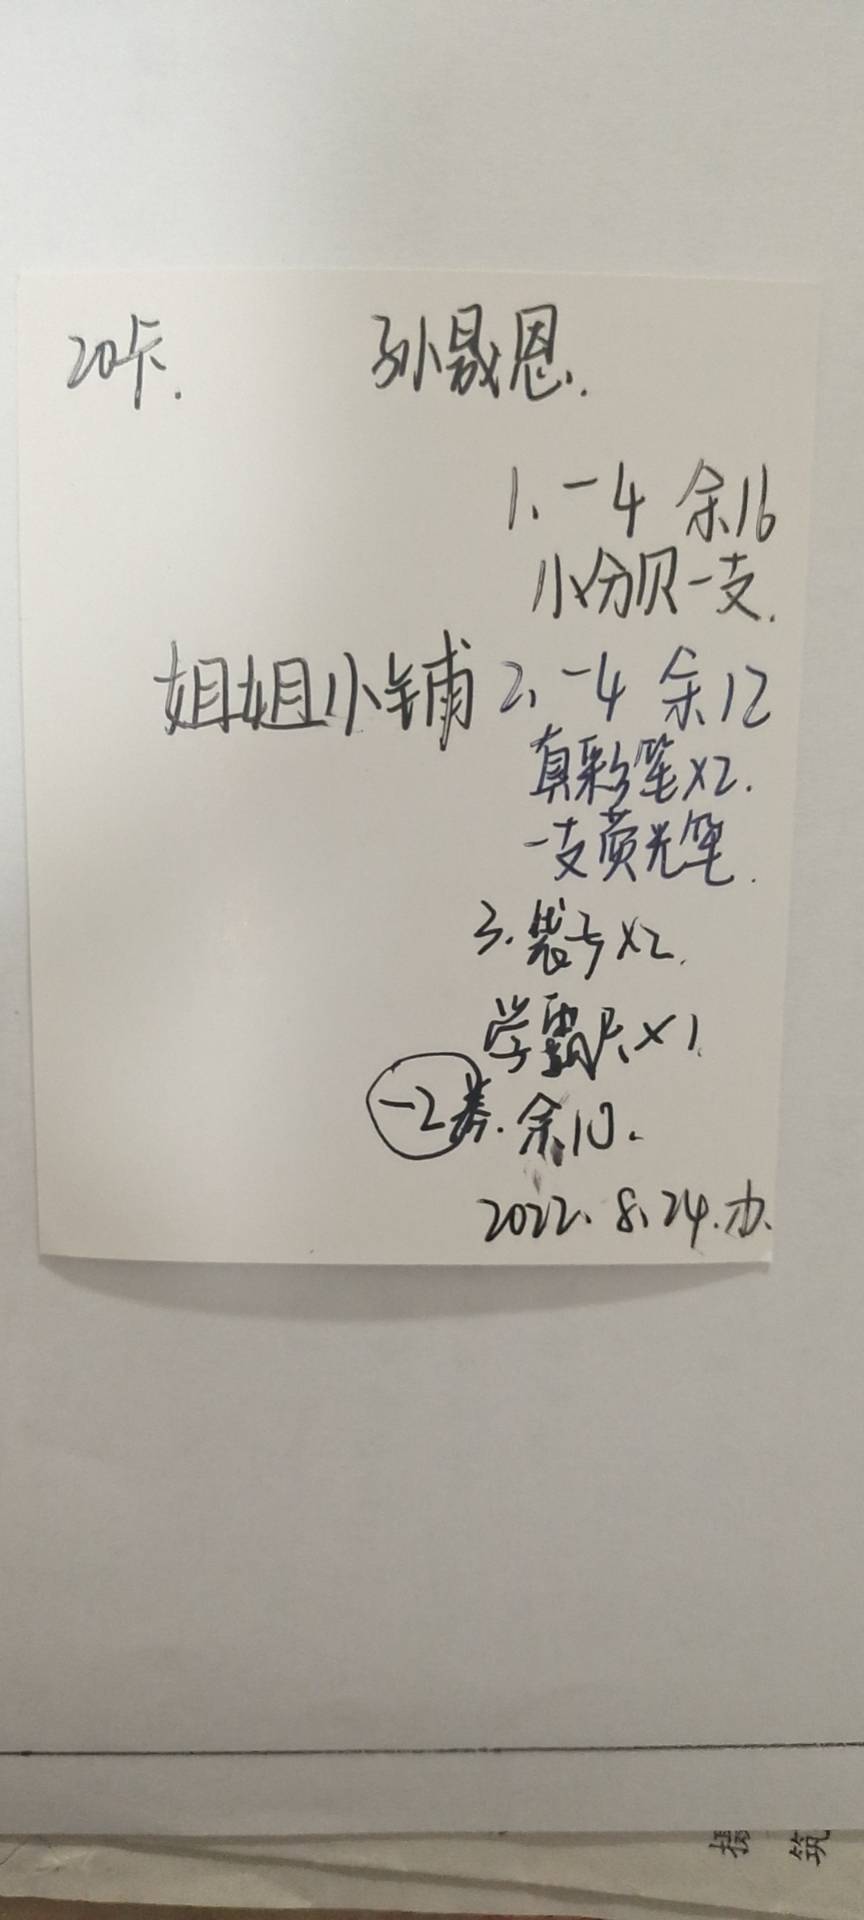 20卡. 孙晟恩.
1、-4 余16
小分贝一支.
姐姐小铺
2、-4 余12
真彩笔×2.
一支荧光笔.
3.袋子×2.
学霸尺×1.
-2 余10.
2022.8.24.办.
筑